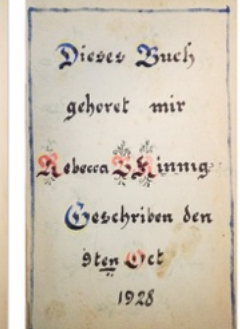 Dieses Buch
gehoret mir
Rebecca B Kinnig
Geschriben den
9ten Oct
1928